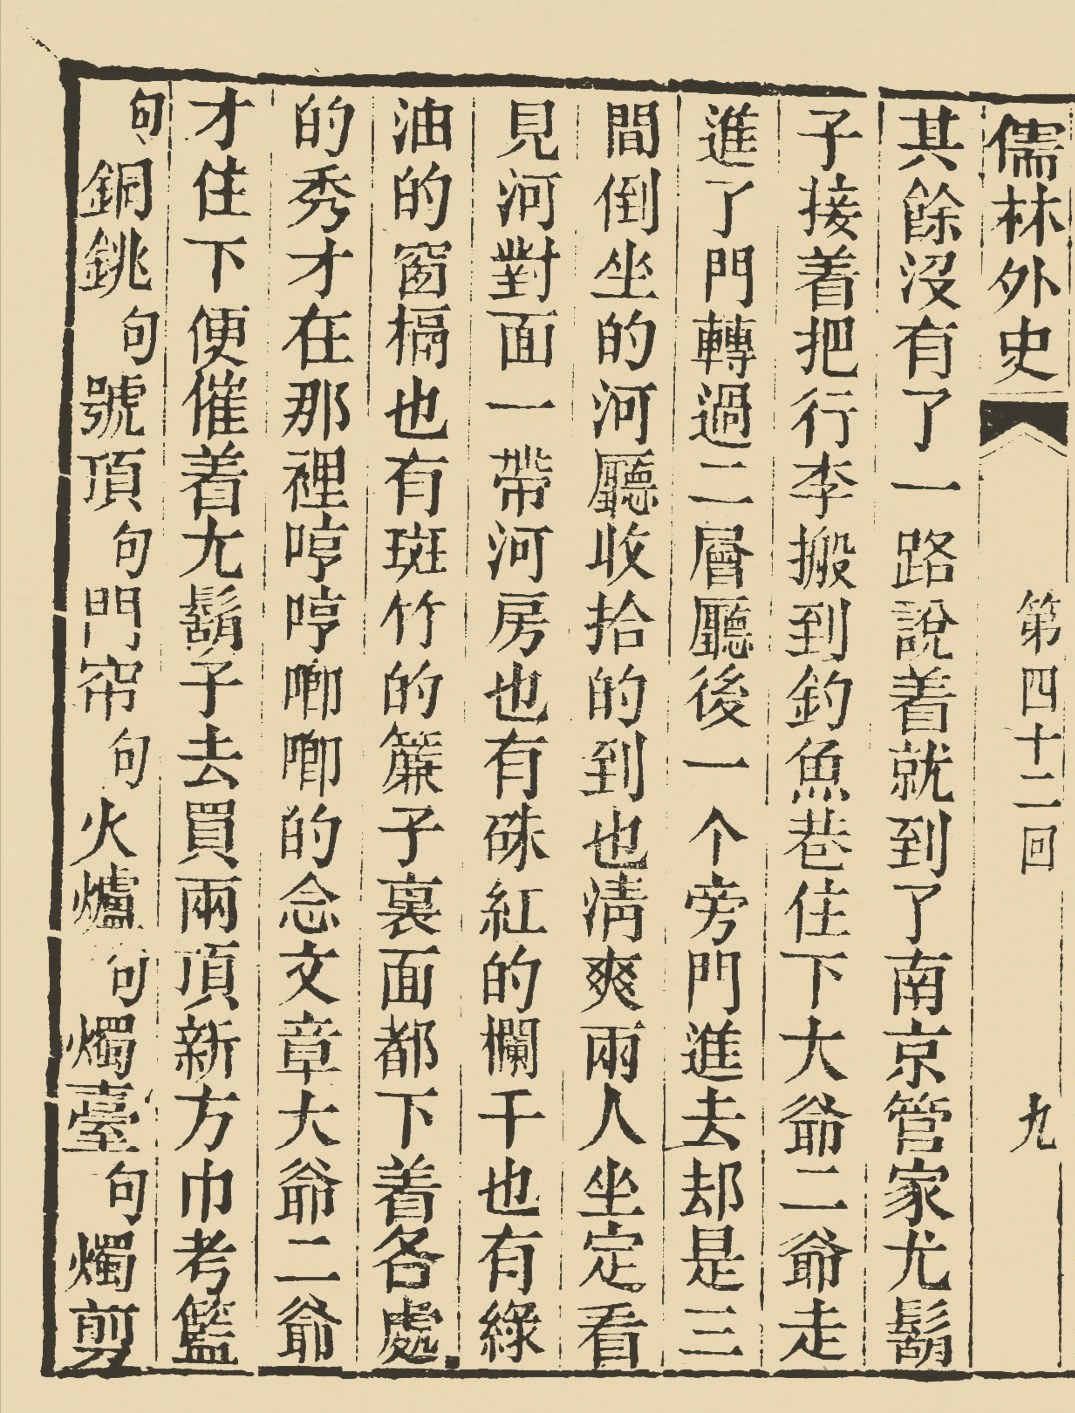 儒林外史 第四十二回 九
其餘沒有了一路說着就到了南京管家尤鬍
子接着把行李搬到釣魚巷住下大爺二爺走
進了門轉過二層廳後一个旁門進去却是三
間倒坐的河廳收拾的到也清爽兩人坐定看
見河對面一帶河房也有硃紅的欄干也有綠
油的窗槅也有斑竹的簾子裏面都下着各處
的秀才在那裡哼哼唧唧的念文章大爺二爺
才住下便催着尤鬍子去買兩頂新方巾考籃
句銅銚句號頂句門帘句火爐句燭臺句燭剪